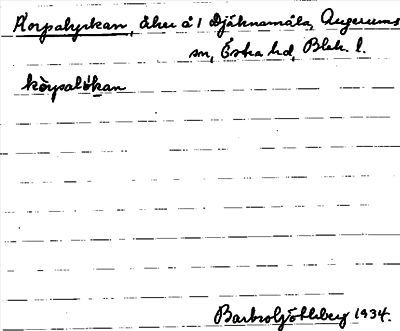 Korpalyckan, åker å 1 Djäknamåla, Augerums
sn, Östra hd, Blek. l.
kòrpalökan
Barbro Göthberg 1934.